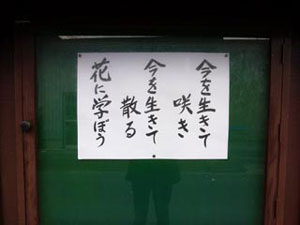 今を生きて
咲き
今を生きて
散る
花に学ぼう